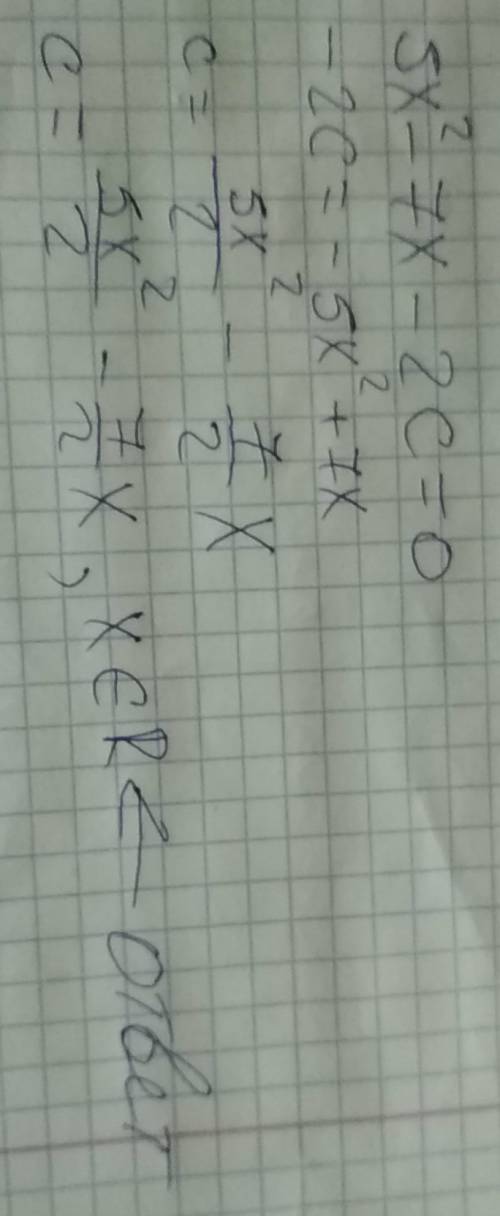 5x² - 7x - 2c = 0
-2c = -5x² + 7x
c = 5x²/2 - 7/2 x
c = 5x²/2 - 7/2 x, x∈R ← ответ